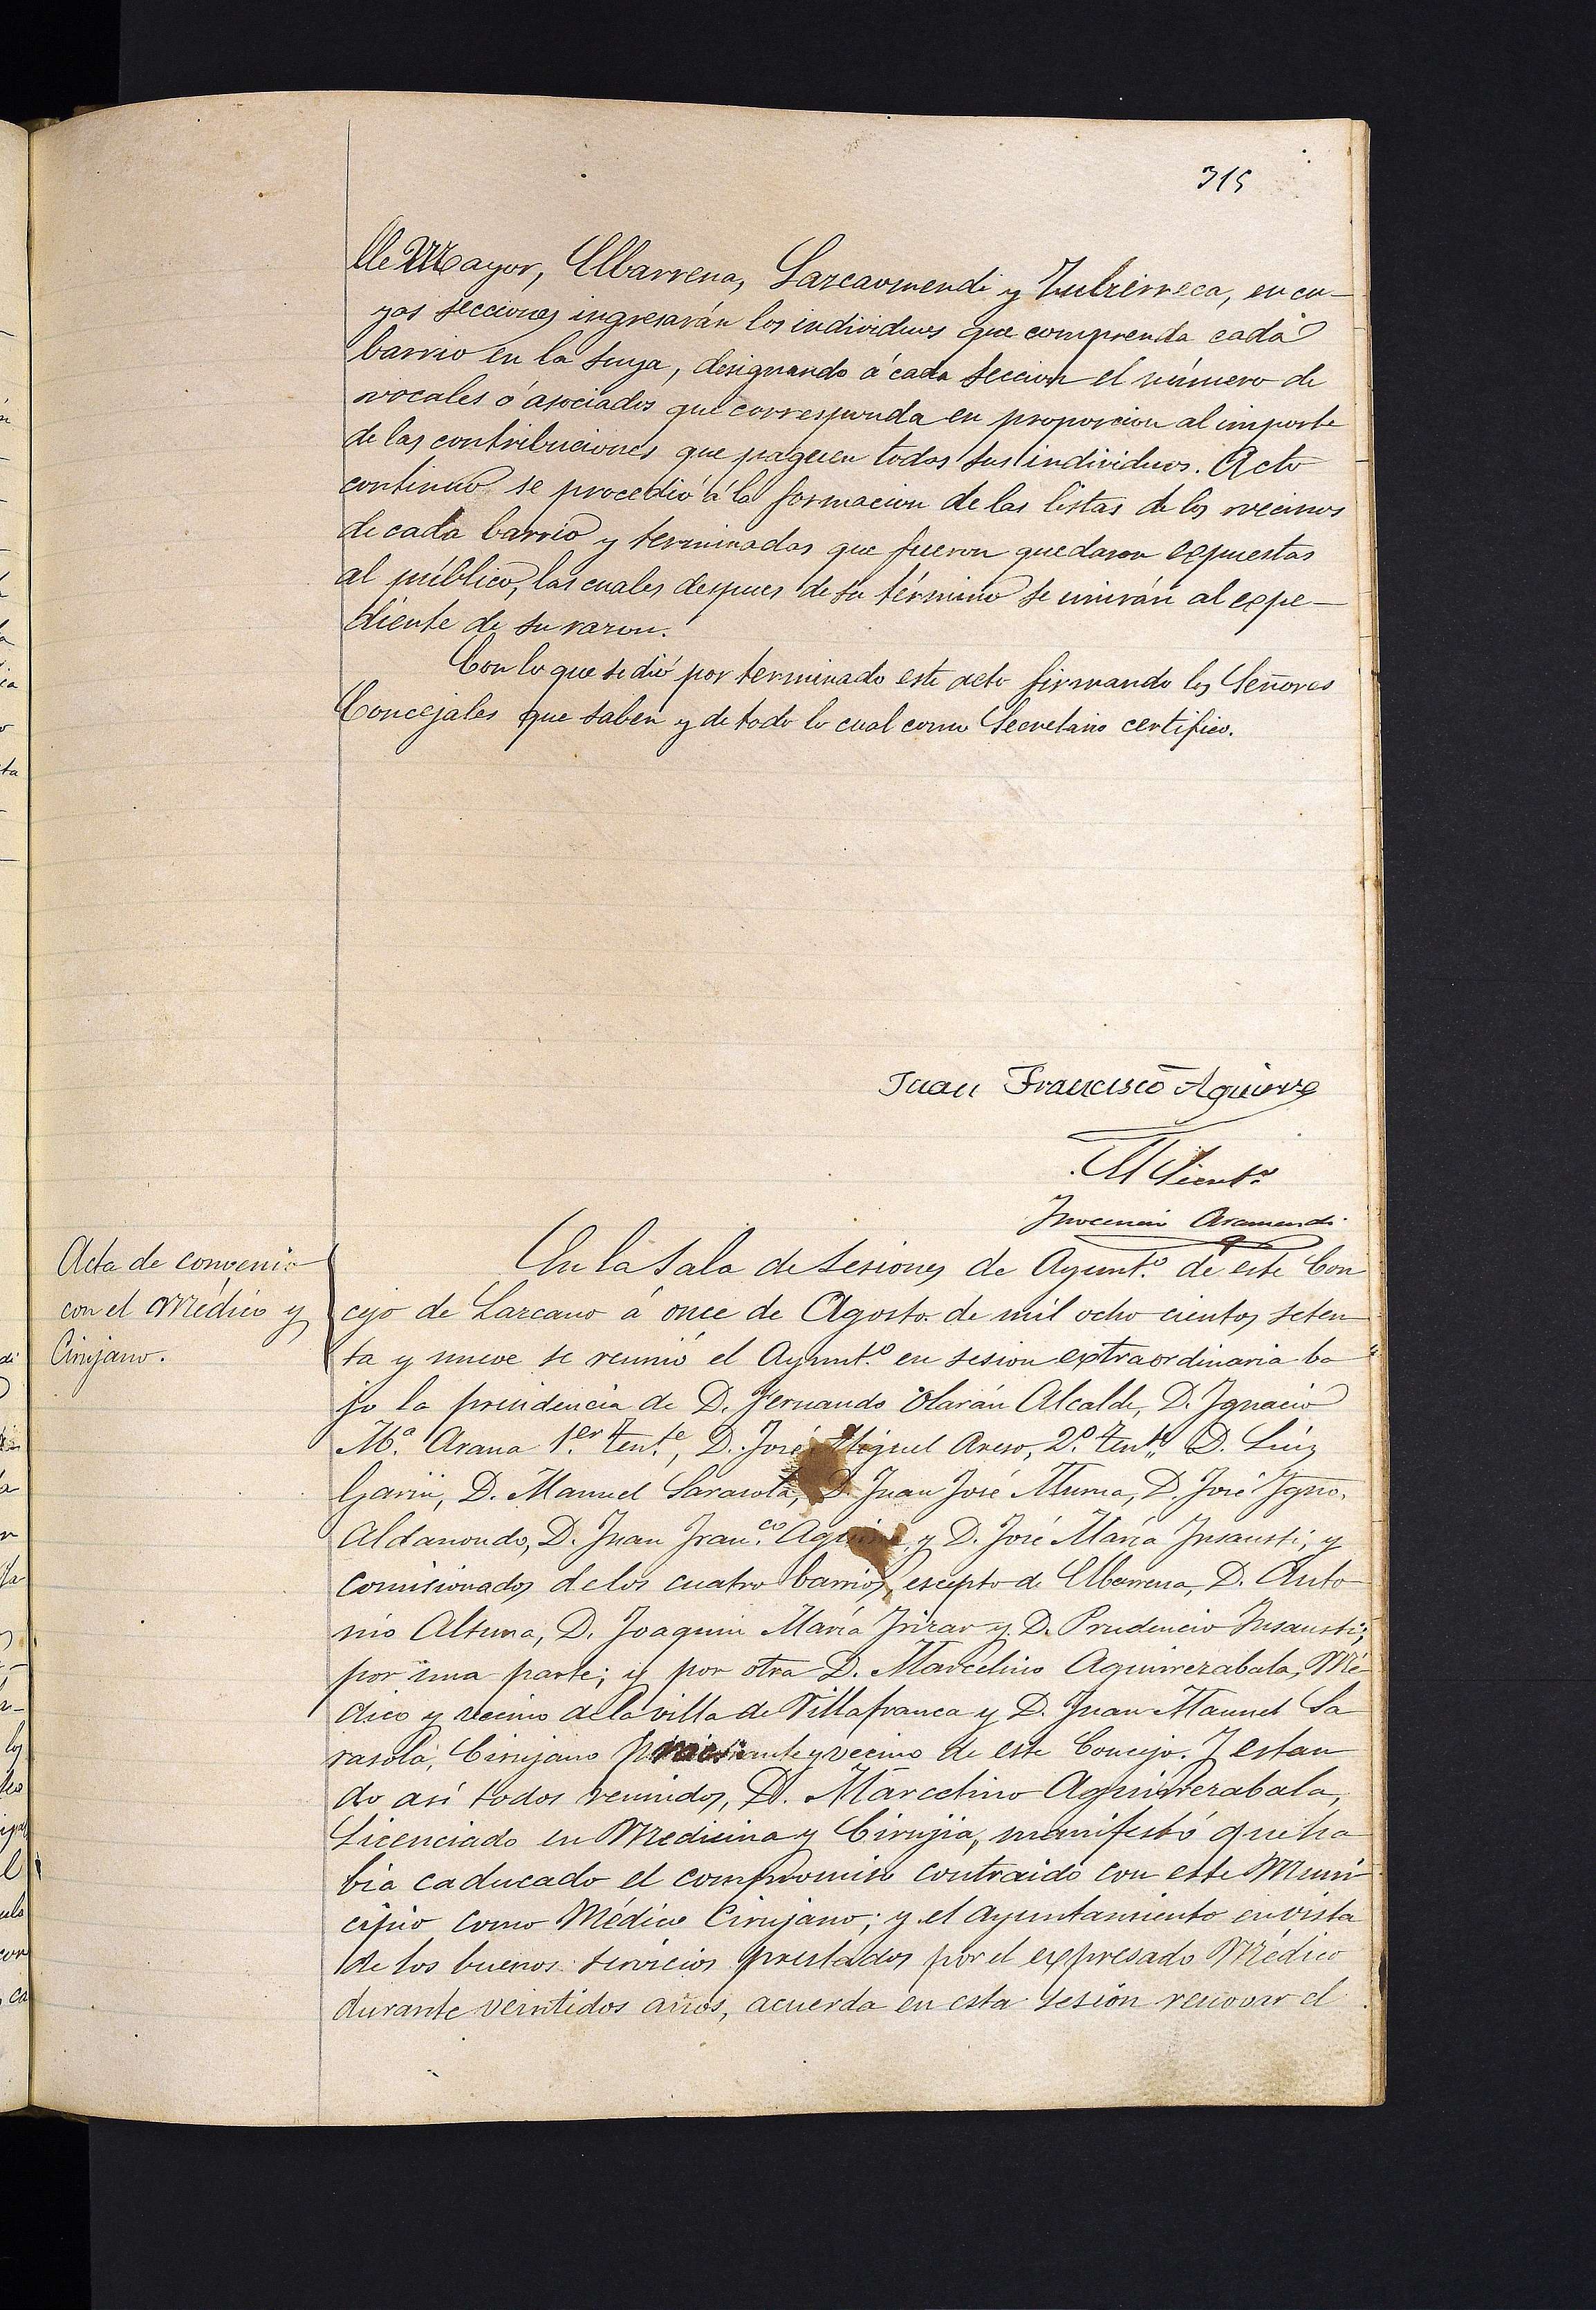 315
lle Mayor, Elbarrena, Lazcaomendi y Zubierreca, en cu-
yas secciones ingresarán los individuos que comprenda cada
barrio en la suya, designando á cada seccion el número de
vocales ó asociados que corresponda en proporcion al importe
de las contribuciones que paguen todos sus individuos. Acto
continuo se procedió á la formacion de las listas de los vecinos
de cada barrio y terminadas que fueron quedaron expuestas
al público, las cuales despues de su término se unirán al expe-
diente de su razon.
Con lo que se dió por terminado este acto firmando los Señores
Concejales que saben y de todo lo cual como Secretario certifico.
Juan Francisco Aguirre
El Secret.º
Inocencio Aramendi
Acta de convenio
con el Médico y
Cirujano.
En la Sala de Sesiones de Ayunt.º de este Con
cejo de Lazcano á once de Agosto de mil ocho cientos seten
ta y nueve se reunió el Ayunt.º en sesion extraordinaria ba
jo la presidencia de D. Fernando Olarán Alcalde, D. Ignacio
M.ª Arana 1.er Tent.e, D. José Miguel Areso, 2.º Tent.e D. Luis
Garin, D. Manuel Sarasola, D. Juan José Murua, D. José Igno.
Aldanondo, D. Juan Fran.co Aguirre, y D. José María Insausti, y
comisionados de los cuatro barrios, escepto de Elbarrena, D. Anto
nio Altuna, D. Joaquin María Irizar y D. Prudencio Insausti;
por una parte; y por otra D. Marcelino Aguirrezabala, Mé
dico y vecino de la villa de Villafranca y D. Juan Manuel Sa
rasola, Cirujano y vecino de este Concejo. Y estan
do así todos reunidos, D. Marcelino Aguirrezabala,
Licenciado en Medicina y Cirujia, manifestó que ha
bia caducado el compromiso contraido con este Muni
cipio como Médico Cirujano; y el ayuntamiento en vista
de los buenos servicios prestados por el expresado Médico
durante veintidos años, acuerda en esta sesión renovar el